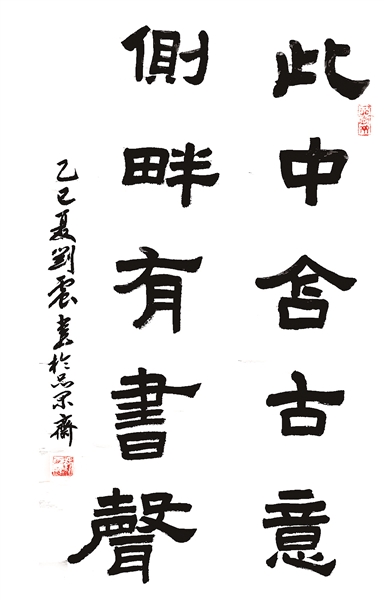 此中含古意
側畔有書聲
乙巳夏劉震書於品宋齋